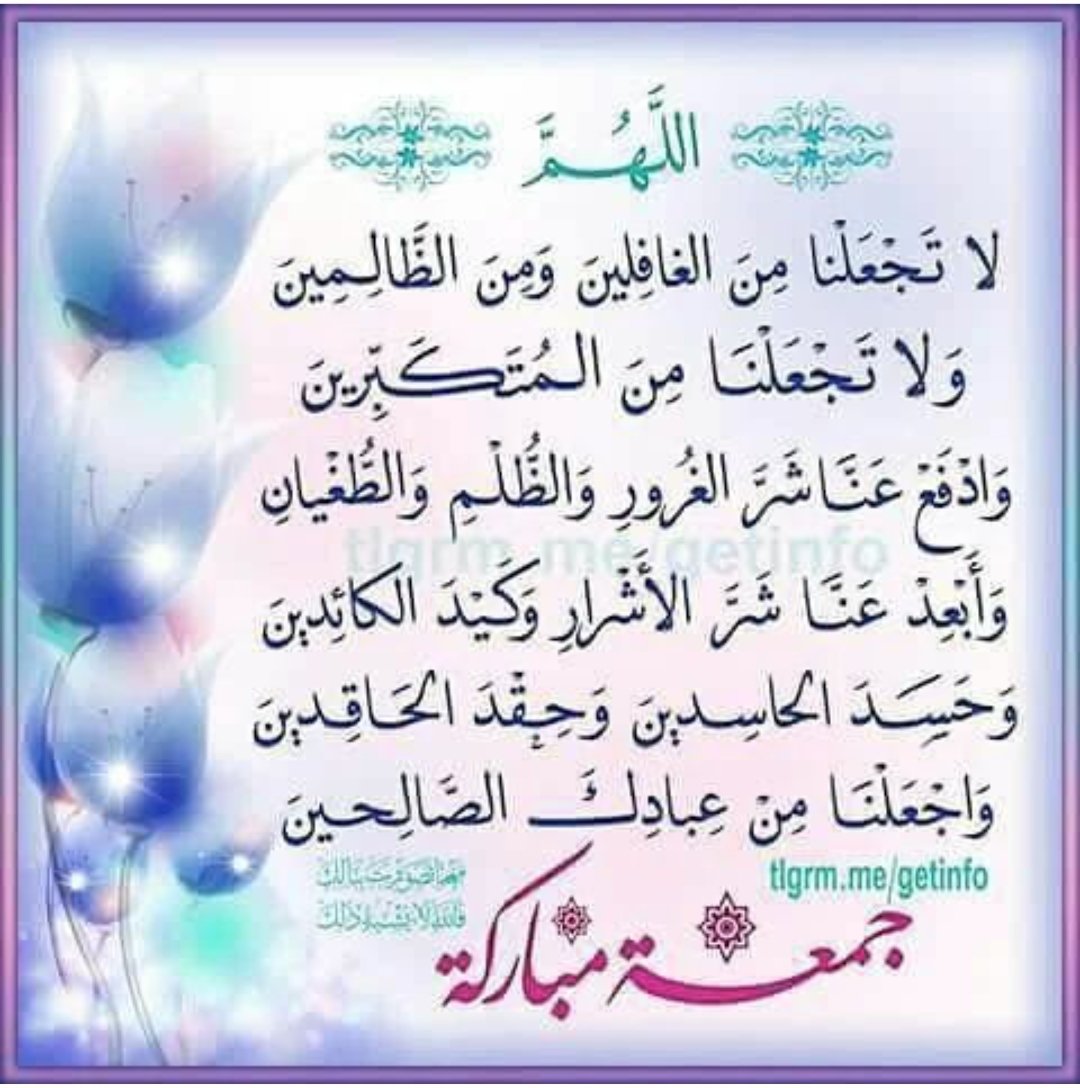 اللَّهُمَّ
لا تَجْعَلْنا مِنَ الغافِلينَ وَمِنَ الظَّالِمِينَ
وَلا تَجْعَلْنَا مِنَ المُتَكَبِّرِينَ
وَادْفَعْ عَنَّا شَرَّ الغُرُورِ وَالظُّلْمِ وَالطُّغْيانِ
tlgrm.me/getinfo
وَأَبْعِدْ عَنَّا شَرَّ الأَشْرارِ وَكَيْدَ الكائِدِينَ
وَحَسَدَ الحاسِدينَ وَحِقْدَ الحَاقِدِينَ
وَاجْعَلْنَا مِنْ عِبادِكَ الصَّالِحينَ
tlgrm.me/getinfo
جمعة مباركة